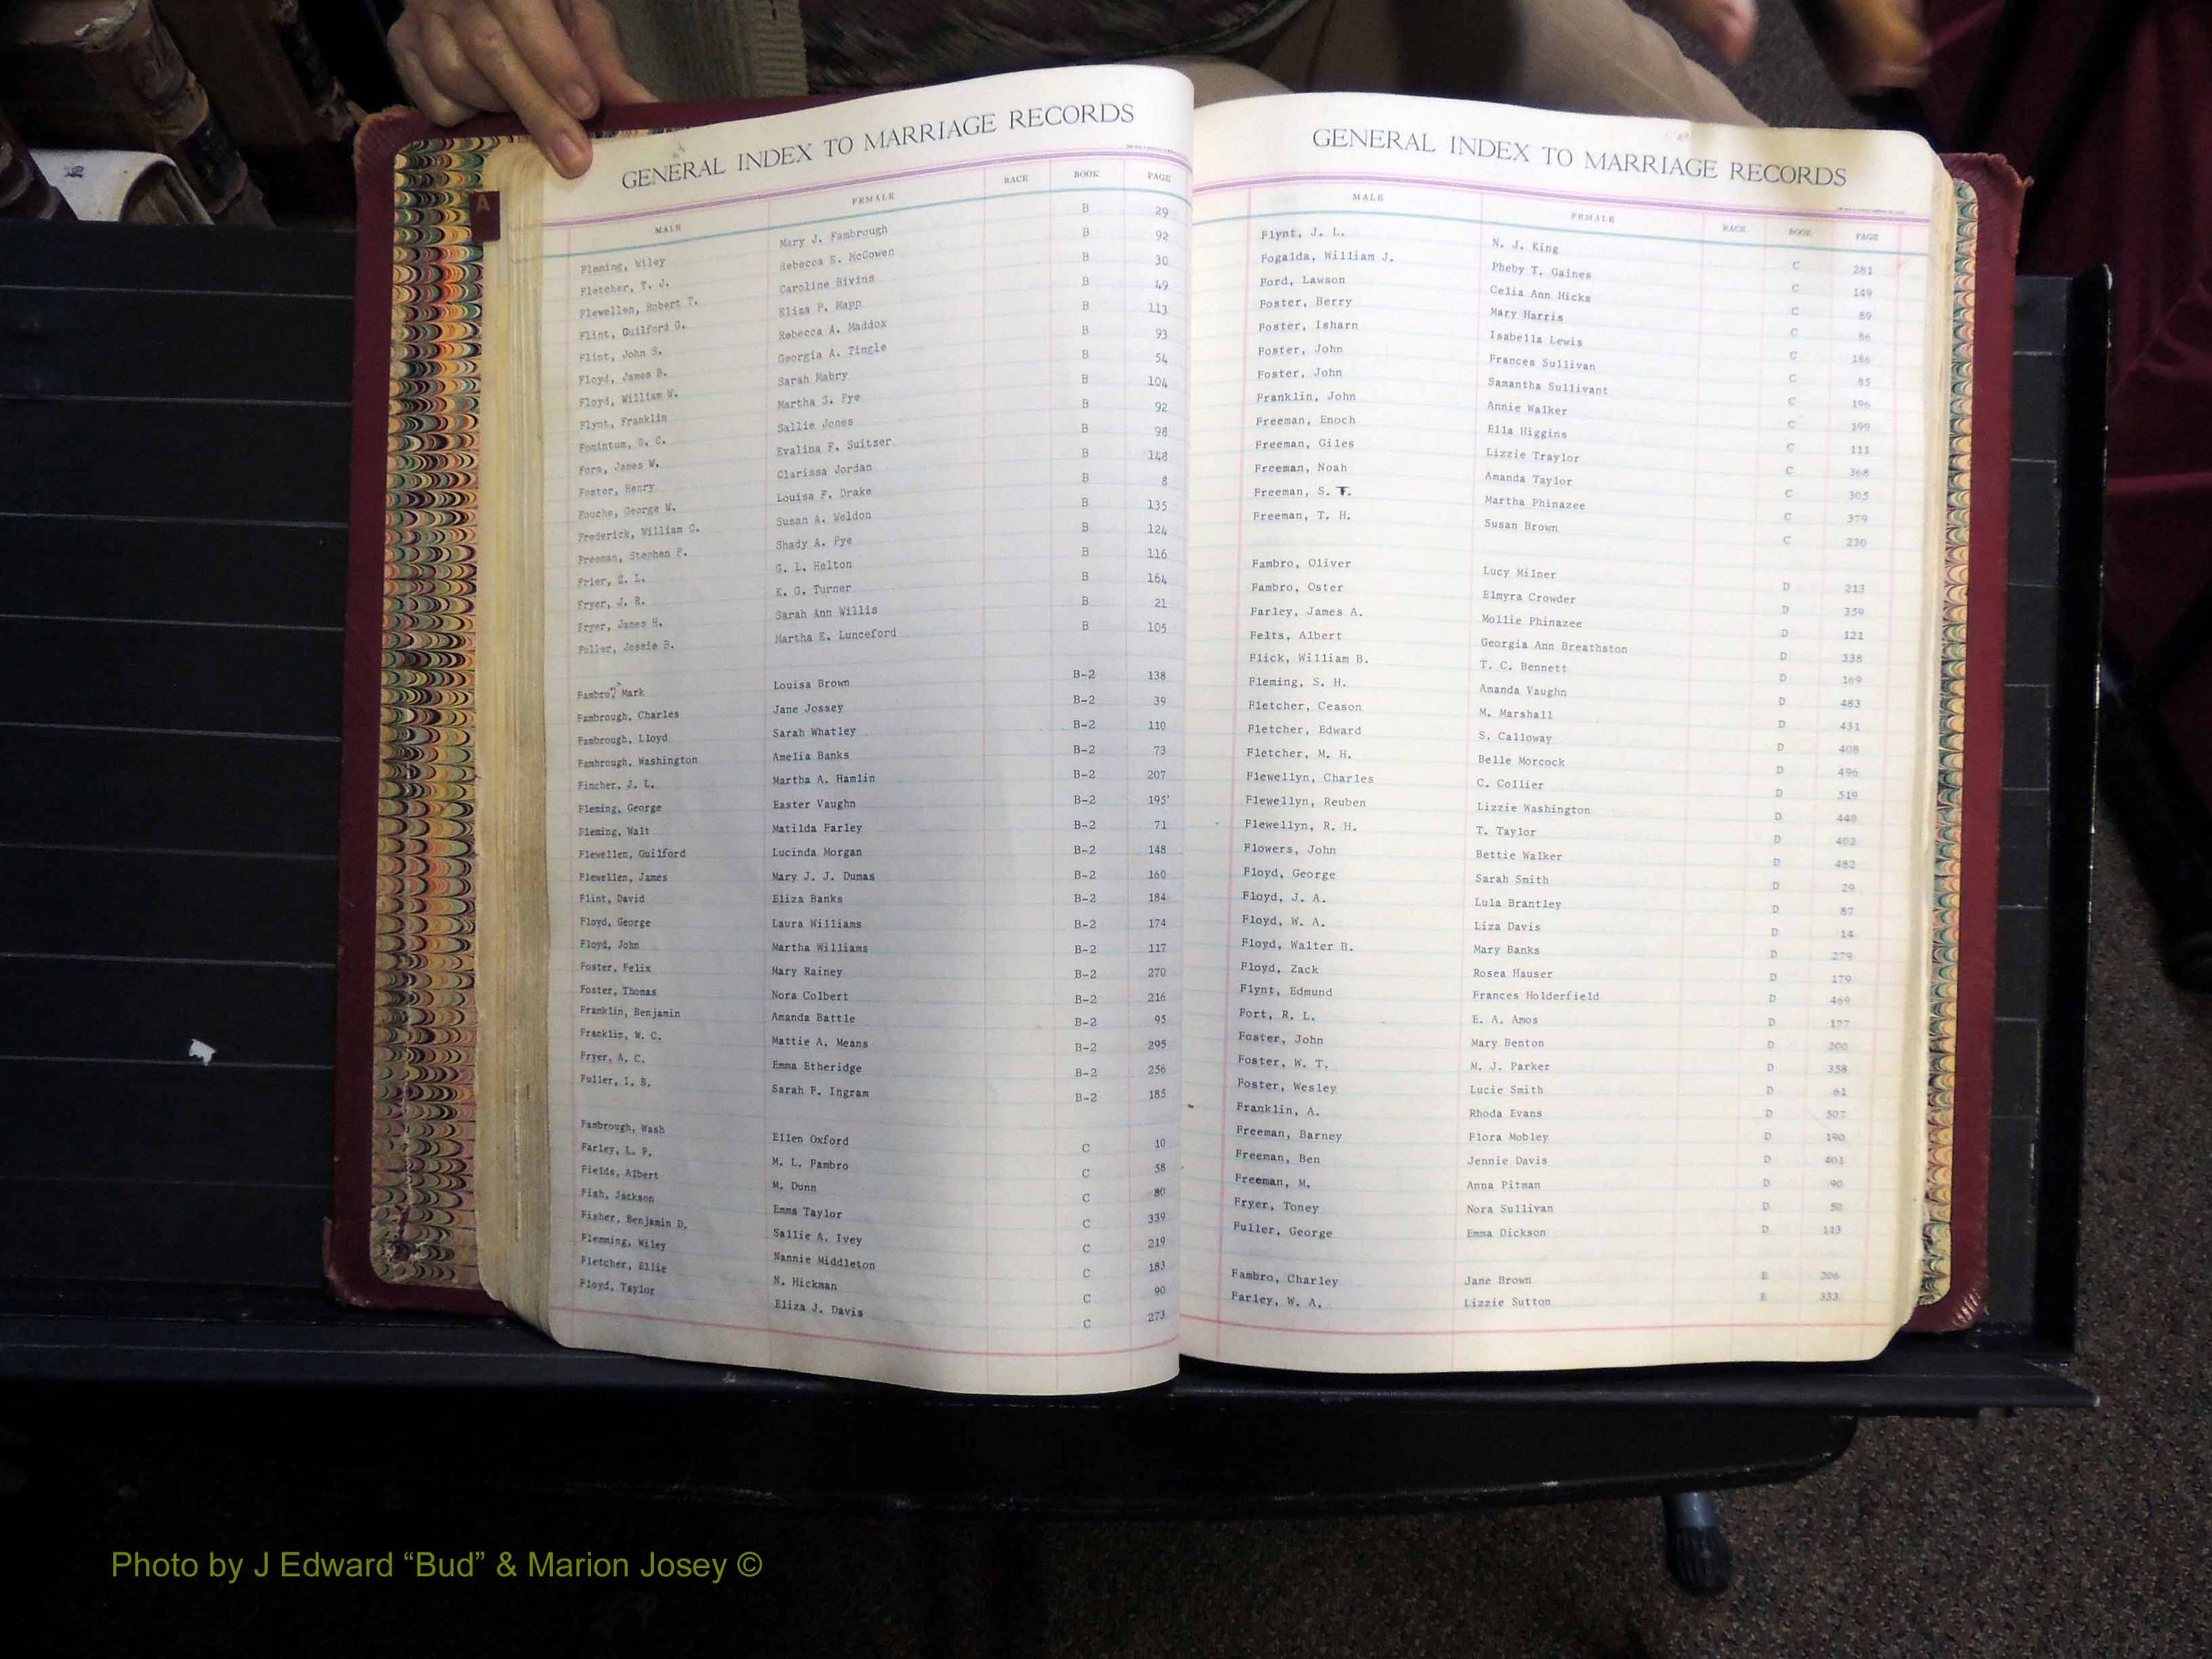 GENERAL INDEX TO MARRIAGE RECORDS
MALE FEMALE RACE BOOK PAGE
Fleming, Wiley Mary J. Fambrough B 29
Fletcher, T. J. Rebecca E. McCowen B 92
Flewellen, Robert T. Caroline Bivins B 30
Flint, Guilford G. Eliza P. Mapp B 49
Flint, John S. Rebecca A. Maddox B 113
Floyd, James B. Georgia A. Tingle B 93
Floyd, William W. Sarah Mabry B 54
Flynt, Franklin Martha S. Pye B 104
Fonintum, D. C. Sallie Jones B 92
Fora, James W. Evalina F. Suitzer B 98
Foster, Henry Clarissa Jordan B 148
Fouche, George W. Louisa F. Drake B 8
Frederick, William G. Susan A. Weldon B 135
Freeman, Stephen F. Shady A. Pye B 124
Frier, Z. L. G. L. Helton B 116
Fryer, J. R. K. G. Turner B 164
Fryer, James H. Sarah Ann Willis B 21
Fuller, Jessie B. Martha E. Lunceford B 105
Fambro, Mark Louisa Brown B-2 138
Fambrough, Charles Jane Jossey B-2 39
Fambrough, Lloyd Sarah Whatley B-2 110
Fambrough, Washington Amelia Banks B-2 73
Fincher, J. L. Martha A. Hamlin B-2 207
Fleming, George Easter Vaughn B-2 195'
Fleming, Walt Matilda Farley B-2 71
Flewellen, Guilford Lucinda Morgan B-2 148
Flewellen, James Mary J. J. Dumas B-2 160
Flint, David Eliza Banks B-2 184
Floyd, George Laura Williams B-2 174
Floyd, John Martha Williams B-2 117
Foster, Felix Mary Rainey B-2 270
Foster, Thomas Nora Colbert B-2 216
Franklin, Benjamin Amanda Battle B-2 95
Franklin, W. C. Mattie A. Means B-2 295
Fryer, A. C. Emma Etheridge B-2 256
Fuller, I. B. Sarah F. Ingram B-2 185
Fambrough, Wash Ellen Oxford C 10
Farley, L. P. M. L. Fambro C 58
Fields, Albert M. Dunn C 80
Fish, Jackson Emma Taylor C 339
Fisher, Benjamin D. Sallie A. Ivey C 219
Flemming, Wiley Nannie Middleton C 183
Fletcher, Ellie N. Hickman C 90
Floyd, Taylor Eliza J. Davis C 273
GENERAL INDEX TO MARRIAGE RECORDS
MALE FEMALE RACE BOOK PAGE
Flynt, J. L. N. J. King C 281
Fogalda, William J. Pheby T. Gaines C 149
Ford, Lawson Celia Ann Hicks C 89
Foster, Berry Mary Harris C 86
Foster, Isharn Isabella Lewis C 186
Foster, John Frances Sullivan C 85
Foster, John Samantha Sullivant C 196
Franklin, John Annie Walker C 199
Freeman, Enoch Ella Higgins C 111
Freeman, Giles Lizzie Traylor C 368
Freeman, Noah Amanda Taylor C 305
Freeman, S. T. Martha Phinazee C 379
Freeman, T. H. Susan Brown C 230
Fambro, Oliver Lucy Milner D 213
Fambro, Oster Elmyra Crowder D 359
Farley, James A. Mollie Phinazee D 121
Felts, Albert Georgia Ann Breathston D 338
Flick, William B. T. C. Bennett D 169
Fleming, S. H. Amanda Vaughn D 483
Fletcher, Ceason M. Marshall D 431
Fletcher, Edward S. Calloway D 408
Fletcher, M. H. Belle Morcock D 496
Flewellyn, Charles C. Collier D 519
Flewellyn, Reuben Lizzie Washington D 440
Flewellyn, R. H. T. Taylor D 402
Flowers, John Bettie Walker D 482
Floyd, George Sarah Smith D 29
Floyd, J. A. Lula Brantley D 87
Floyd, W. A. Liza Davis D 14
Floyd, Walter B. Mary Banks D 279
Floyd, Zack Rosea Hauser D 179
Flynt, Edmund Frances Holderfield D 469
Fort, R. L. E. A. Amos D 177
Foster, John Mary Benton D 200
Foster, W. T. M. J. Parker D 358
Foster, Wesley Lucie Smith D 61
Franklin, A. Rhoda Evans D 507
Freeman, Barney Flora Mobley D 190
Freeman, Ben Jennie Davis D 401
Freeman, M. Anna Pitman D 90
Fryer, Toney Nora Sullivan D 50
Fuller, George Emma Dickson D 113
Fambro, Charley Jane Brown E 206
Farley, W. A. Lizzie Sutton E 333
A
Photo by J Edward “Bud” & Marion Josey ©